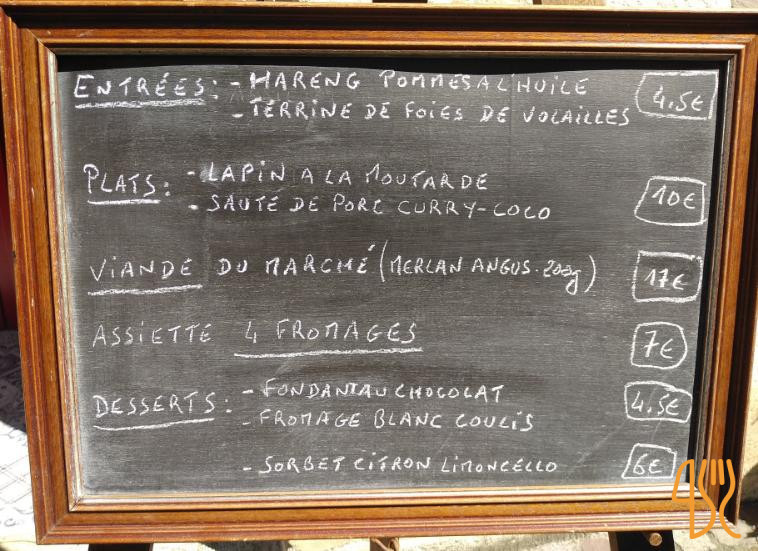 ENTRÉES: - HARENG POMMES A L'HUILE
- TERRINE DE FOIES DE VOLAILLES
4.5€
PLATS: - LAPIN A LA MOUTARDE
- SAUTÉ DE PORC CURRY-COCO
10€
VIANDE DU MARCHÉ (MERLAN ANGUS. 200g) 17€
ASSIETTE 4 FROMAGES 7€
DESSERTS: - FONDANT AU CHOCOLAT
- FROMAGE BLANC COULIS
4.5€
- SORBET CITRON LIMONCELLO 6€